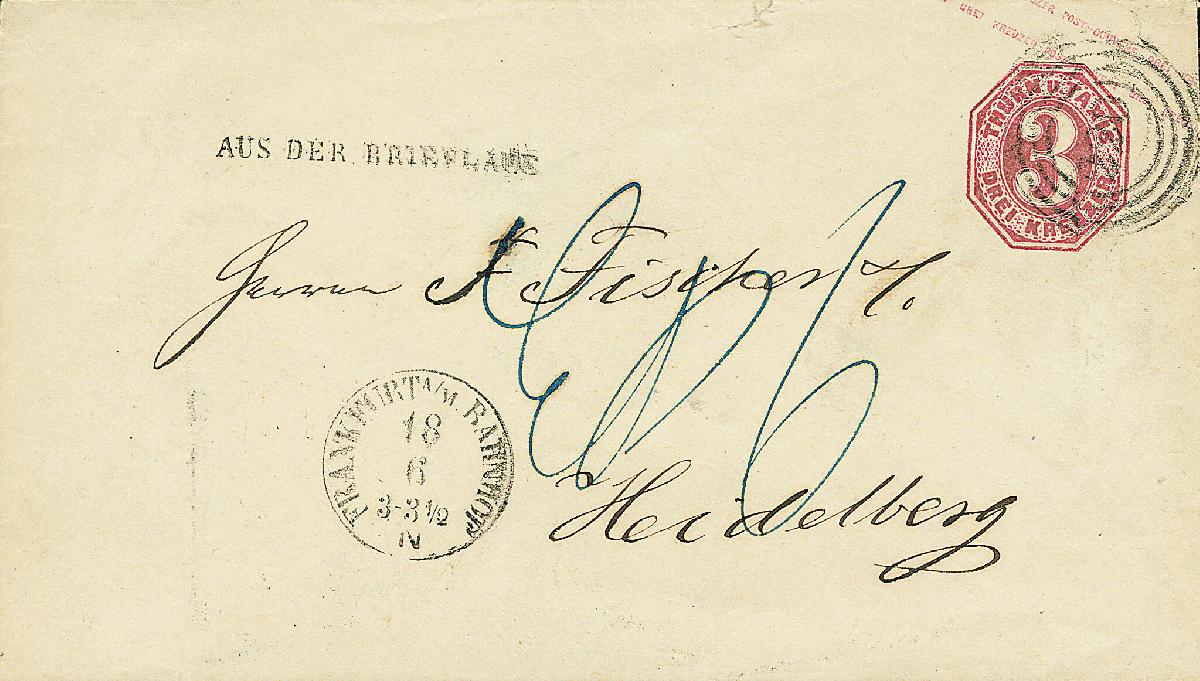 DREI KREUZER POST
THURN U. TAXIS
3
DREI KREUZER
AUS DER BRIEFLADE
Herrn F. Fischer
Heidelberg
FRANKFURT A/M. BAHNHOF
18
6
3-3½
N